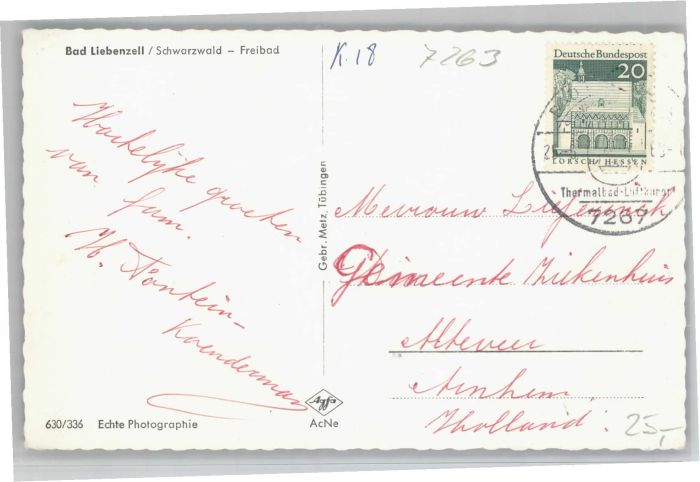 Bad Liebenzell / Schwarzwald – Freibad
K. 18
7263
Deutsche Bundespost
20
LORSCH / HESSEN
Thermalbad-Luftkurort
7267
Hartelijke groeten
van fam.
H.
Gebr. Metz, Tübingen
Mevrouw
Gemeente Ziekenhuis
Alteveer
Arnhem,
Holland.
25,-
630/336 Echte Photographie
Agfa
AcNe